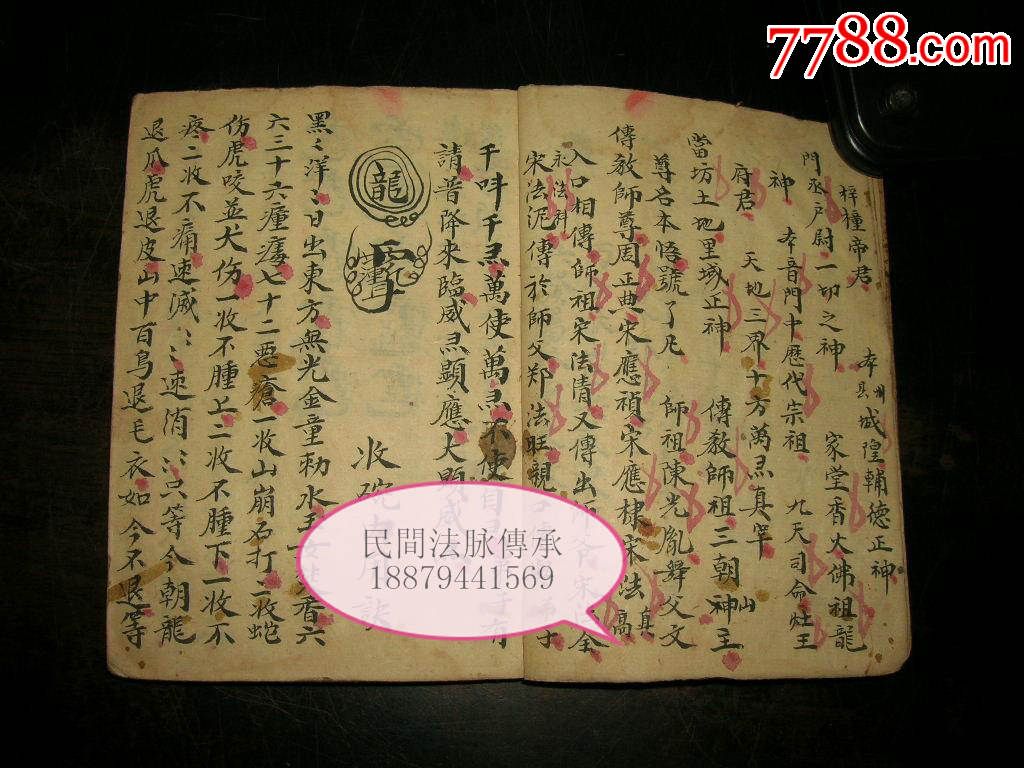 7788.com
梓橦帝君 本州县城隍輔德正神
門丞户尉一切之神 家堂香火佛祖龍
神 本音門中歷代宗祖 九天司命灶王
府君 天地三界十方萬灵真宰
當坊土地里域正神 傳教師祖三朝神王
尊名本悟號了凡 師祖陳光胤舞父文
傳教師尊周正典宋應禎宋應棣宋法高真
入口相傳師祖宋法清又傳出
宋法泥傳於師父郑法旺親
千叫千灵萬使萬灵不使自灵 有
請普降來臨威灵顯應大賜威
龍
收
黑々洋々日出東方無光金童勅水玉 香六
六三十六瘇瘻七十二悪瘡一收山崩石打二收蛇
伤虎咬並犬伤一收不腫上二收不腫下一收不
疼二收不痛速滅々々速消々々只等今朝龍
退瓜虎退皮山中百鸟退毛衣如今不退等
民間法脉傳承
18879441569